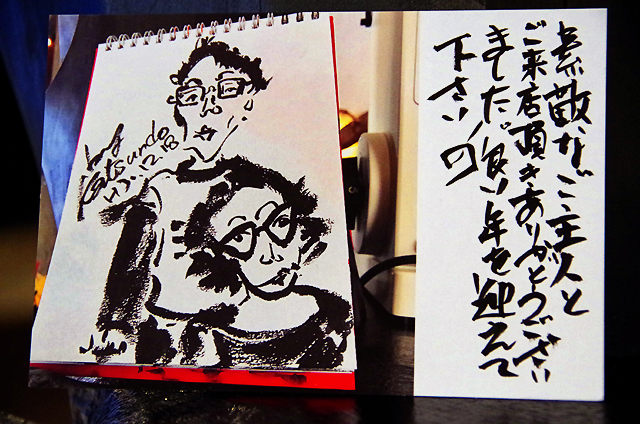 素敵なご主人と
ご来店頂きありがとうござい
ました/良い年を迎えて
下さいの
by
Katsundo
17.12.18